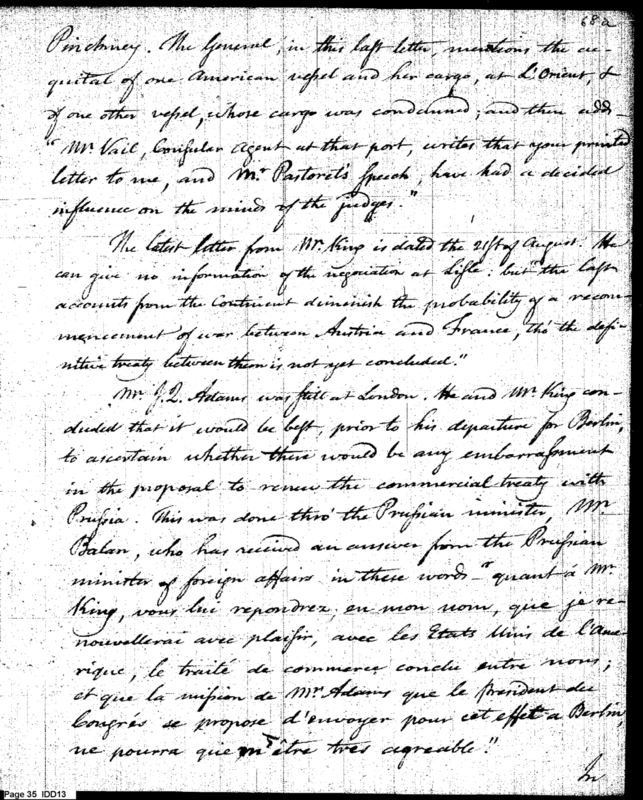 68a
Pinckney. The General, in this last letter, mentions the ac-
quital of one American vessel and her cargo, at L'Orient, &
of one other vessel, whose cargo was condemned; and then adds—
"Mr Vail, Consular Agent at that port, writes that your printed
letter to me, and Mr. Pastoret's speech, have had a decided
influence on the minds of the judges."
The latest letter from Mr. King is dated the 21st of August. He
can give no information of the negociation at Lisle: but "the last
accounts from the Continent diminish the probability of a recom-
mencement of war between Austria and France, tho' the defi-
nitive treaty between them is not yet concluded."
Mr. J. Q. Adams was still at London. He and Mr. King con-
cluded that it would be best, prior to his departure for Berlin,
to ascertain whether there would be any embarrassment
in the proposal to renew the commercial treaty with
Prussia. This was done thro' the Prussian minister, Mr.
Balan, who has received an answer from the Prussian
minister of foreign affairs in these words—"quant à Mr
King, vous lui repondrez, en mon nom, que je re-
nouvellerai avec plaisir, avec les Etats Unis de l'Ame-
rique, le traité de commerce conclu entre nous;
et que la mission de Mr. Adams que le president du
Congrés se propose d'envoyer pour cet effet a Berlin,
ne pourra que m'être tres agreable."
In
Page 35 IDD13